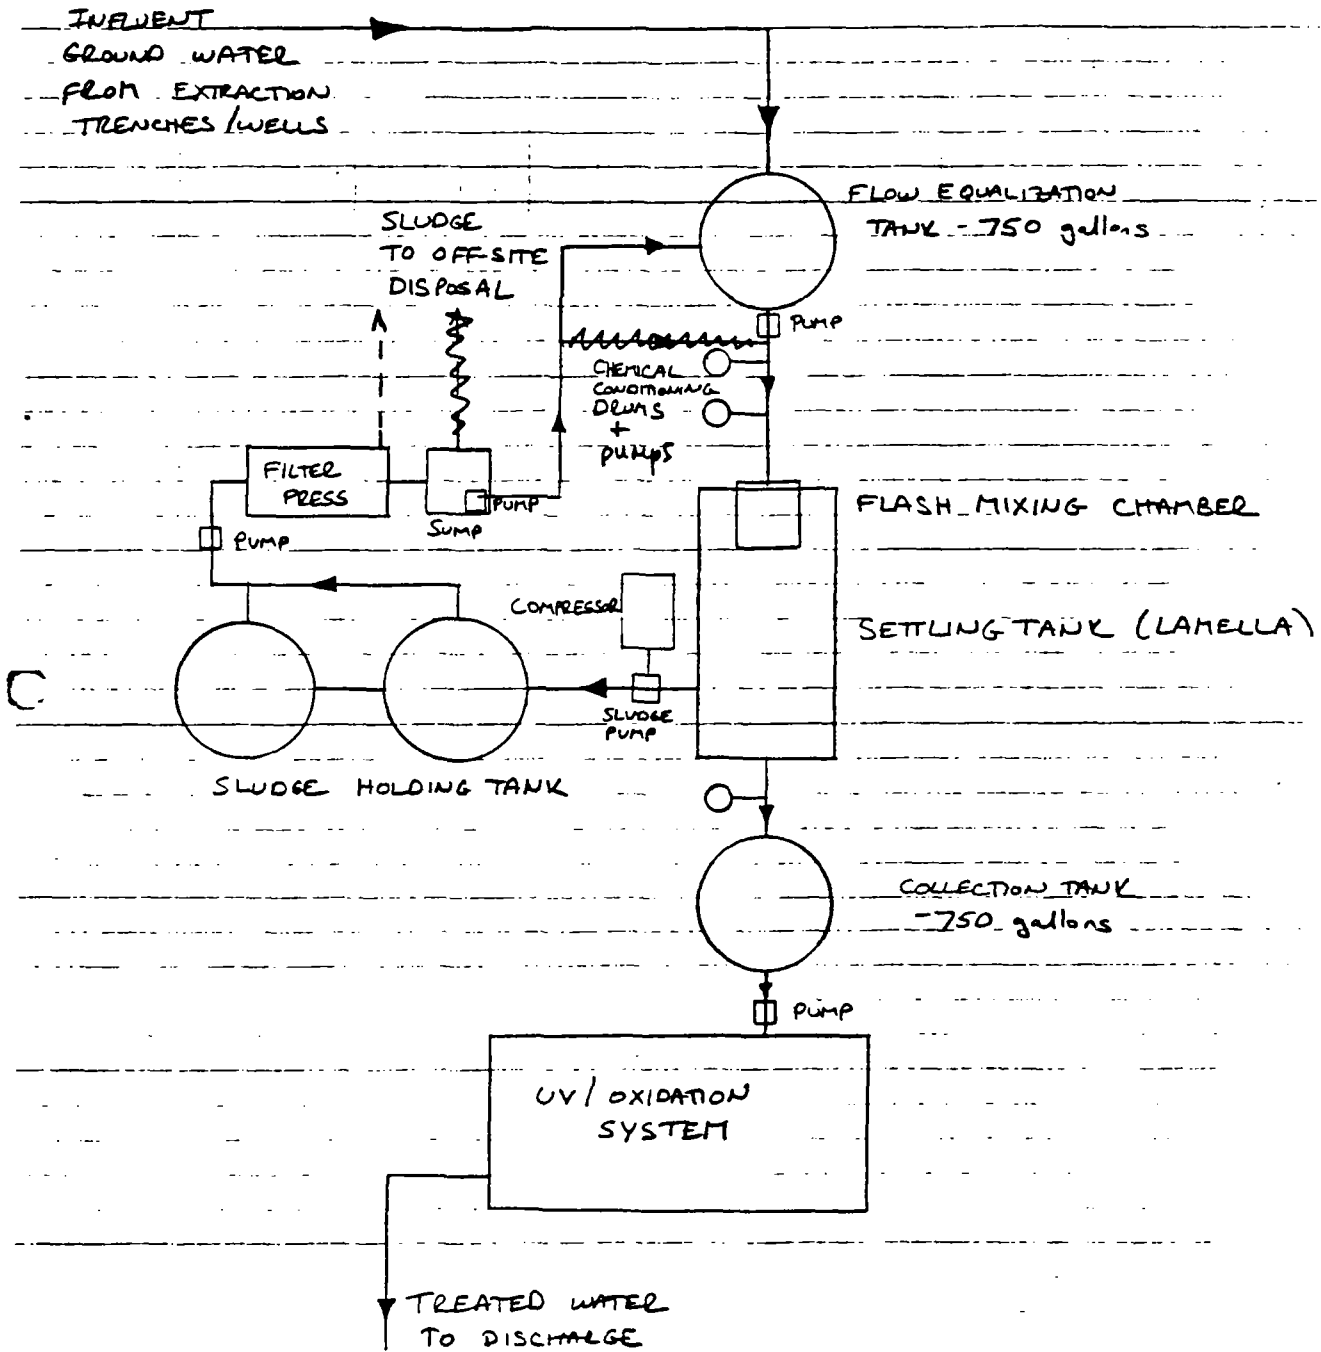 INFLUENT
GROUND WATER
FROM EXTRACTION
TRENCHES/WELLS
FLOW EQUALIZATION
TANK - 750 gallons
SLUDGE
TO OFF-SITE
DISPOSAL
PUMP
CHEMICAL
CONDITIONING
DRUMS
+
PUMPS
FILTER
PRESS
PUMP
SUMP
PUMP
FLASH MIXING CHAMBER
COMPRESSOR
SETTLING TANK (LAMELLA)
SLUDGE
PUMP
SLUDGE HOLDING TANK
COLLECTION TANK
-750 gallons
PUMP
UV/OXIDATION
SYSTEM
TREATED WATER
TO DISCHARGE